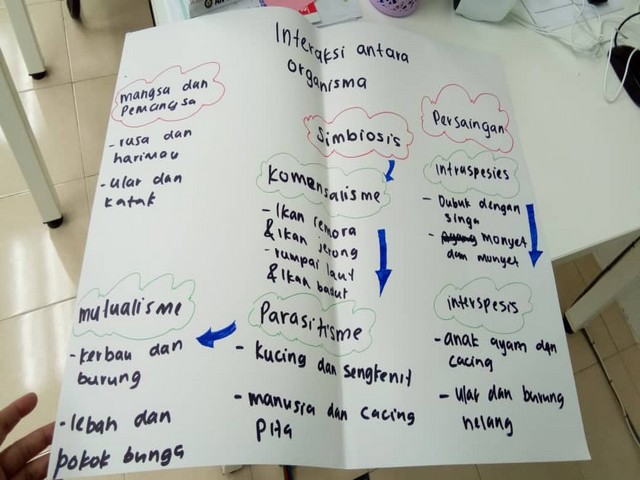 Interaksi antara
organisma
mangsa dan
Pemangsa
- rusa dan
harimau
- ular dan
katak
Simbiosis
Komensalisme
- Ikan remora
& Ikan jerong
- rumpai laut
& Ikan badut
Parasitisme
- kucing dan sengkenit
- manusia dan cacing
pita
mutualisme
- kerbau dan
burung
- lebah dan
pokok bunga
Persaingan
intraspesies
- Dubuk dengan
singa
- monyet
dan monyet
interspesis
- anak ayam dgn
cacing
- ular dan burung
helang